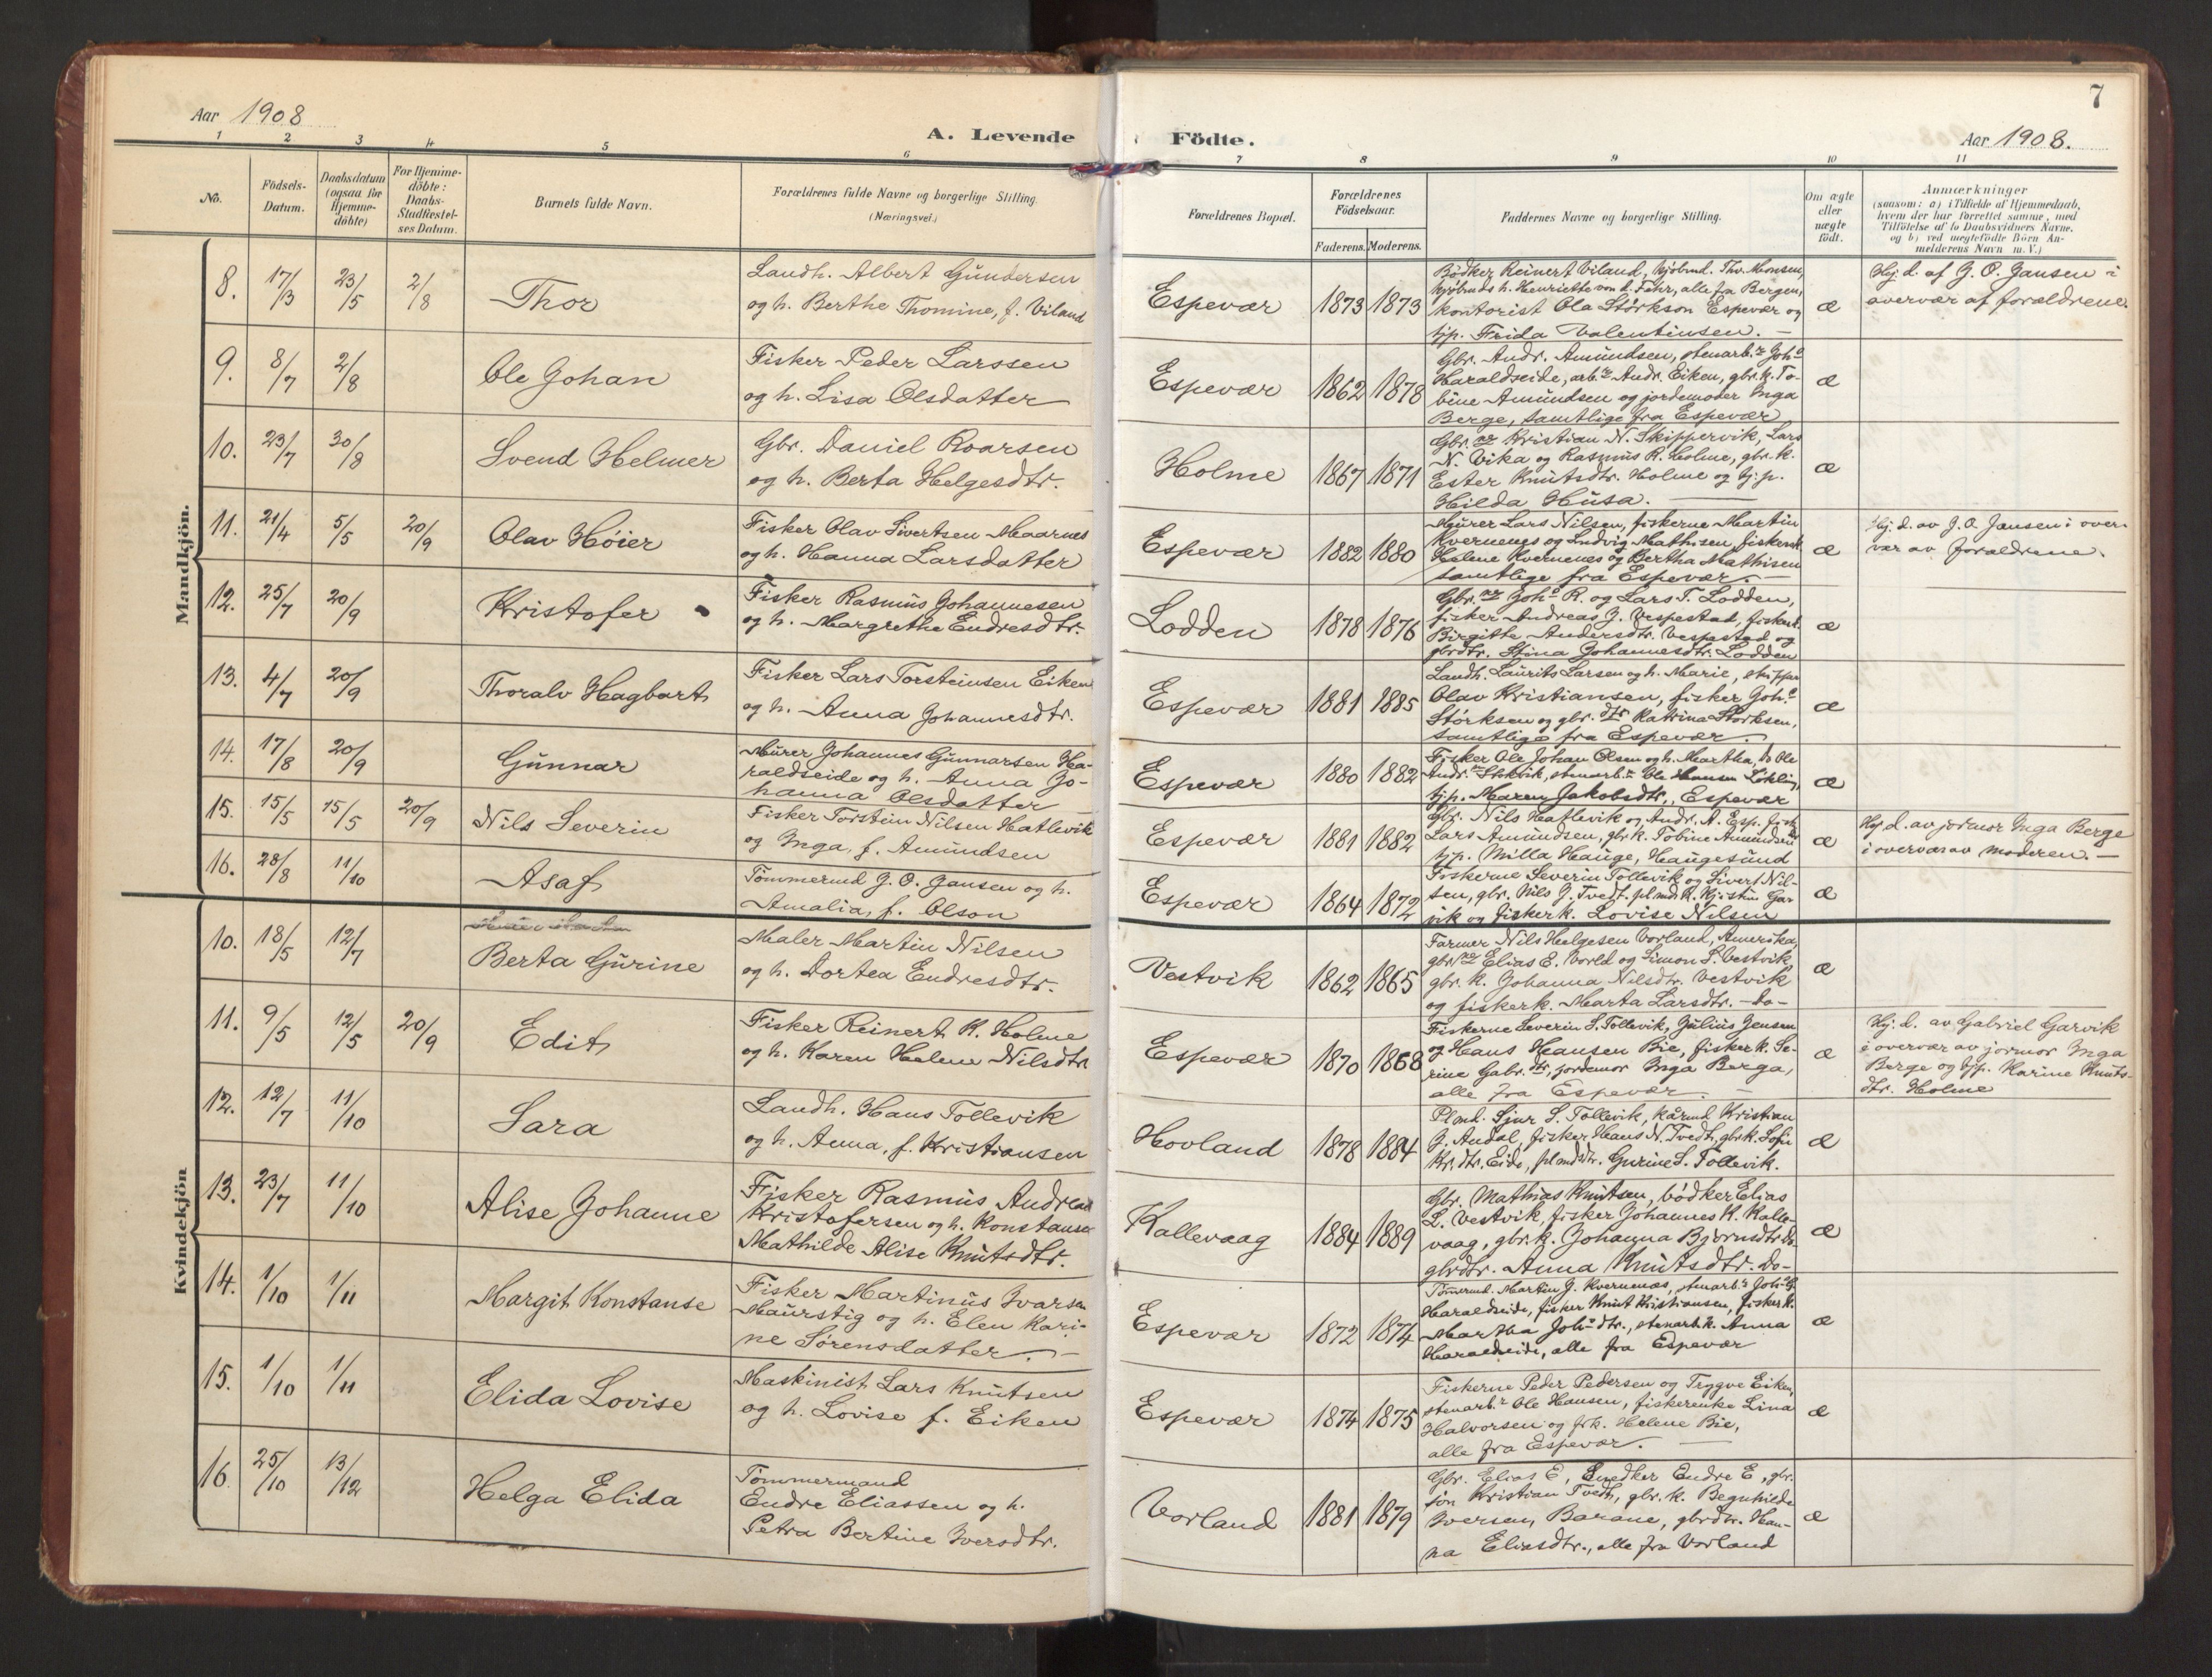 Aar 1908
A. Levende
1 2 3 4 5 6
No.
Födsels-
Datum.
Daabsdatum
(ogsaa for
Hjemme-
döbte)
For Hjemme-
döbte:
Daabs-
Stadfæstel-
ses Datum.
Barnets fulde Navn.
Forældrenes fulde Navne og borgerlige Stilling.
(Næringsvei.)
Mandkjön.
8. 17/3 23/5 2/8 Thor
Landh. Albert Gundersen
og h. Berthe Thomine, f. Viland
9. 8/7 2/8 Ole Johan
Fisker Peder Larssen
og h. Lisa Olsdatter
10. 23/7 30/8 Svend Helmer
Gbr. Daniel Roarsen
og h. Berta Helgesdtr.
11. 21/4 5/5 20/9 Olav Höier
Fisker Olav Sivertsen Maarnes
og h. Hanna Larsdatter
12. 25/7 20/9 Kristofer
Fisker Rasmus Johannesen
og h. Margrethe Endresdtr.
13. 4/7 20/9 Thoralv Hagbart
Fisker Lars Torsteinsen Eiken
og h. Anna Johannesdtr.
14. 17/8 20/9 Gunnar
Murer Johannes Gunnarsen Ha-
raldseide og h. Anna Jo-
hanna Olsdatter
15. 15/5 15/5 20/9 Nils Severin
Fisker Torstein Nilsen Hatlevik
og Inga, f. Amundsen
16. 28/8 11/10 Asaf
Tömmermd J. O. Jansen og h.
Amalia, f. Olson
Kvindekjön
10. 18/5 12/7 Berta Gurine
Maler Martin Nilsen
og h. Dortea Endresdtr.
11. 9/5 12/5 20/9 Edit
Fisker Reinert K. Holme
og h. Karen Helene Nilsdtr
12. 12/7 11/10 Sara
Landh. Hans Tollevik
og h. Anna, f. Kristiansen
13. 23/7 11/10 Alise Johanne
Fisker Rasmus Andreas
Kristofersen og h. Konstanse
Mathilde Alise Knutsdtr.
14. 1/10 1/11 Margit Konstanse
Fisker Martinus Ivarsen
Maurstig og h. Elen Kari-
ne Sörensdatter.
15. 1/10 1/11 Elida Lovise
Maskinist Lars Knutsen
og h. Lovise f. Eiken
16. 25/10 13/12 Helga Elida
Tömmermand
Endre Eliassen og h.
Petra Bertine Iversdtr.
7
Födte.
Aar 1908.
7 8 9 10 11
Forældrenes Bopæl.
Forældrenes
Födselsaar.
Faderens. Moderens.
Faddernes Navne og borgerlige Stilling.
Om ægte
eller
uægte
födt.
Anmærkninger
(saasom: a) i Tilfælde af Hjemmedaab,
hvem der har forrettet samme, med
Tilföielse af to Daabsvidners Navne.
og b) ved uægtefödte Börn An-
melderens Navn m. V.)
Espevær 1873 1873
Bödker Reinert Viland, kjöbmd. Thv. Monsen,
kjöbmds h. Henriette von d. Fahr, alle fra Bergen,
kontorist Ola Störkson Espevær og
tjp. Frida Valentinsen.
æ
Hj. d. af J. O. Jansen i
overvær af forældrene.
Espevær 1862 1878
Gbr. Andr. Amundsen, stenarbr Joh.
Haraldseide, arbr Andr. Eiken, gbr.k. To-
bine Amundsen og jordemoder Inga
Berge, samtlige fra Espevær
æ
Holme 1867 1871
Gbr. Kristian N. Skippervik, Lars
N. Vika og Rasmus R. Holme, gbr.k.
Ester Knutsdtr. Holme og tj.p.
Hilda Husa.
æ
Espevær 1882 1880
Murer Lars Nilsen, fiskerne Martin
Kvernenes og Ludvig Mathisen, fiskerk.
Helene Kvernenes og Bertha Mathisen
samtlige fra Espevær.
æ
Hj. d. av J. O. Jansen i over-
vær av forældrene.
Lodden 1878 1876
Gbr. Joh. R. og Lars T. Lodden,
fisker Andreas J. Vespestad, fiskerk.
Birgitte Andersdtr. Vespestad og
gbrdtr. Stina Johannesdtr. Lodden
æ
Espevær 1881 1885
Landh. Laurits Larsen og h. Marie, skipper
Olav Kristiansen, fisker Joh.
Störksen og gbr. dtr Katrina Störksen,
samtlige fra Espevær.
æ
Espevær 1880 1882
Fisker Ole Johan Olsen og h. Martha,
stenarbr Ole
tjp. Maren Jakobsdtr., Espevær
æ
Espevær 1881 1882
Gbr. Nils Hatlevik og Andr. A. Esp. fisk
Lars Amundsen, gbr.k. Tobine Amundsen
tjp. Milla Hauge, Haugesund
æ
Hj. d. av jormor Inga Berge
i overvær av moderen.
Espevær 1864 1872
Fiskerne Severin Tollevik og Sivert Nil-
sen, gbr. Nils J. Tvedt, plmds k. Kjistin Gar
vik og fiskerk. Lovise Nilsen
æ
Vestvik 1862 1865
Farmer Nils Helgesen Vorland, Amerika,
gbr Elias E. Vorld og Simon S. Vestvik,
gbr. k. Johanna Nilsdtr. Vestvik
og fiskerk. Marta Larsdtr. -do-
æ
Espevær 1870 1868
Fiskerne Severin S. Tollevik, Julius Jensen
og Hans Hansen Bie, fiskerk. Se-
rine Gabr. dtr, jordemor Inga Berge,
alle fra Espevær.
æ
Hj. d. av Gabriel Garvik
i overvær av jormor Inga
Berge og tjp. Karine Knuts-
dtr. Holme
Hovland 1878 1884
Plmd. Sjur S. Tollevik, kårmd Kristian
J. Andal, fisker Hans N. Tvedt, gbr.k. Sofie
Kr. dtr. Eide, plmdsdtr. Gurine S. Tollevik.
æ
Kallevaag 1884 1889
Gbr. Mathias Knutsen, bödker Elias
L. Vestvik, fisker Johannes K. Kalle-
vaag, gbr.k. Johanna Björnsdtr. do-
gbrdtr. Anna Knutsdtr. do-
æ
Espevær 1872 1874
Tömmermd. Martin J. Kvernenes, stenarbr Joh. G.
Haraldseide, fisker Knut Kristiansen, fiskerk.
Martha Joh. dtr., stenarb.k. Anna
Haraldseide, alle fra Espevær
æ
Espevær 1874 1875
Fiskerne Peder Pedersen og Trygve Eiken,
stenarbr Ole Hansen, fiskerenke Lina
Halvorsen og frk. Helene Bie,
alle fra Espevær.
æ
Vorland 1881 1879
Gbr. Elias E, Snedker Endre E, gbr.
sön Kristian Tvedt, gbr. k. Begnhilde
Iversen, Barane, gbrdtr. Han-
na Eliasdtr., alle fra Vorland
æ